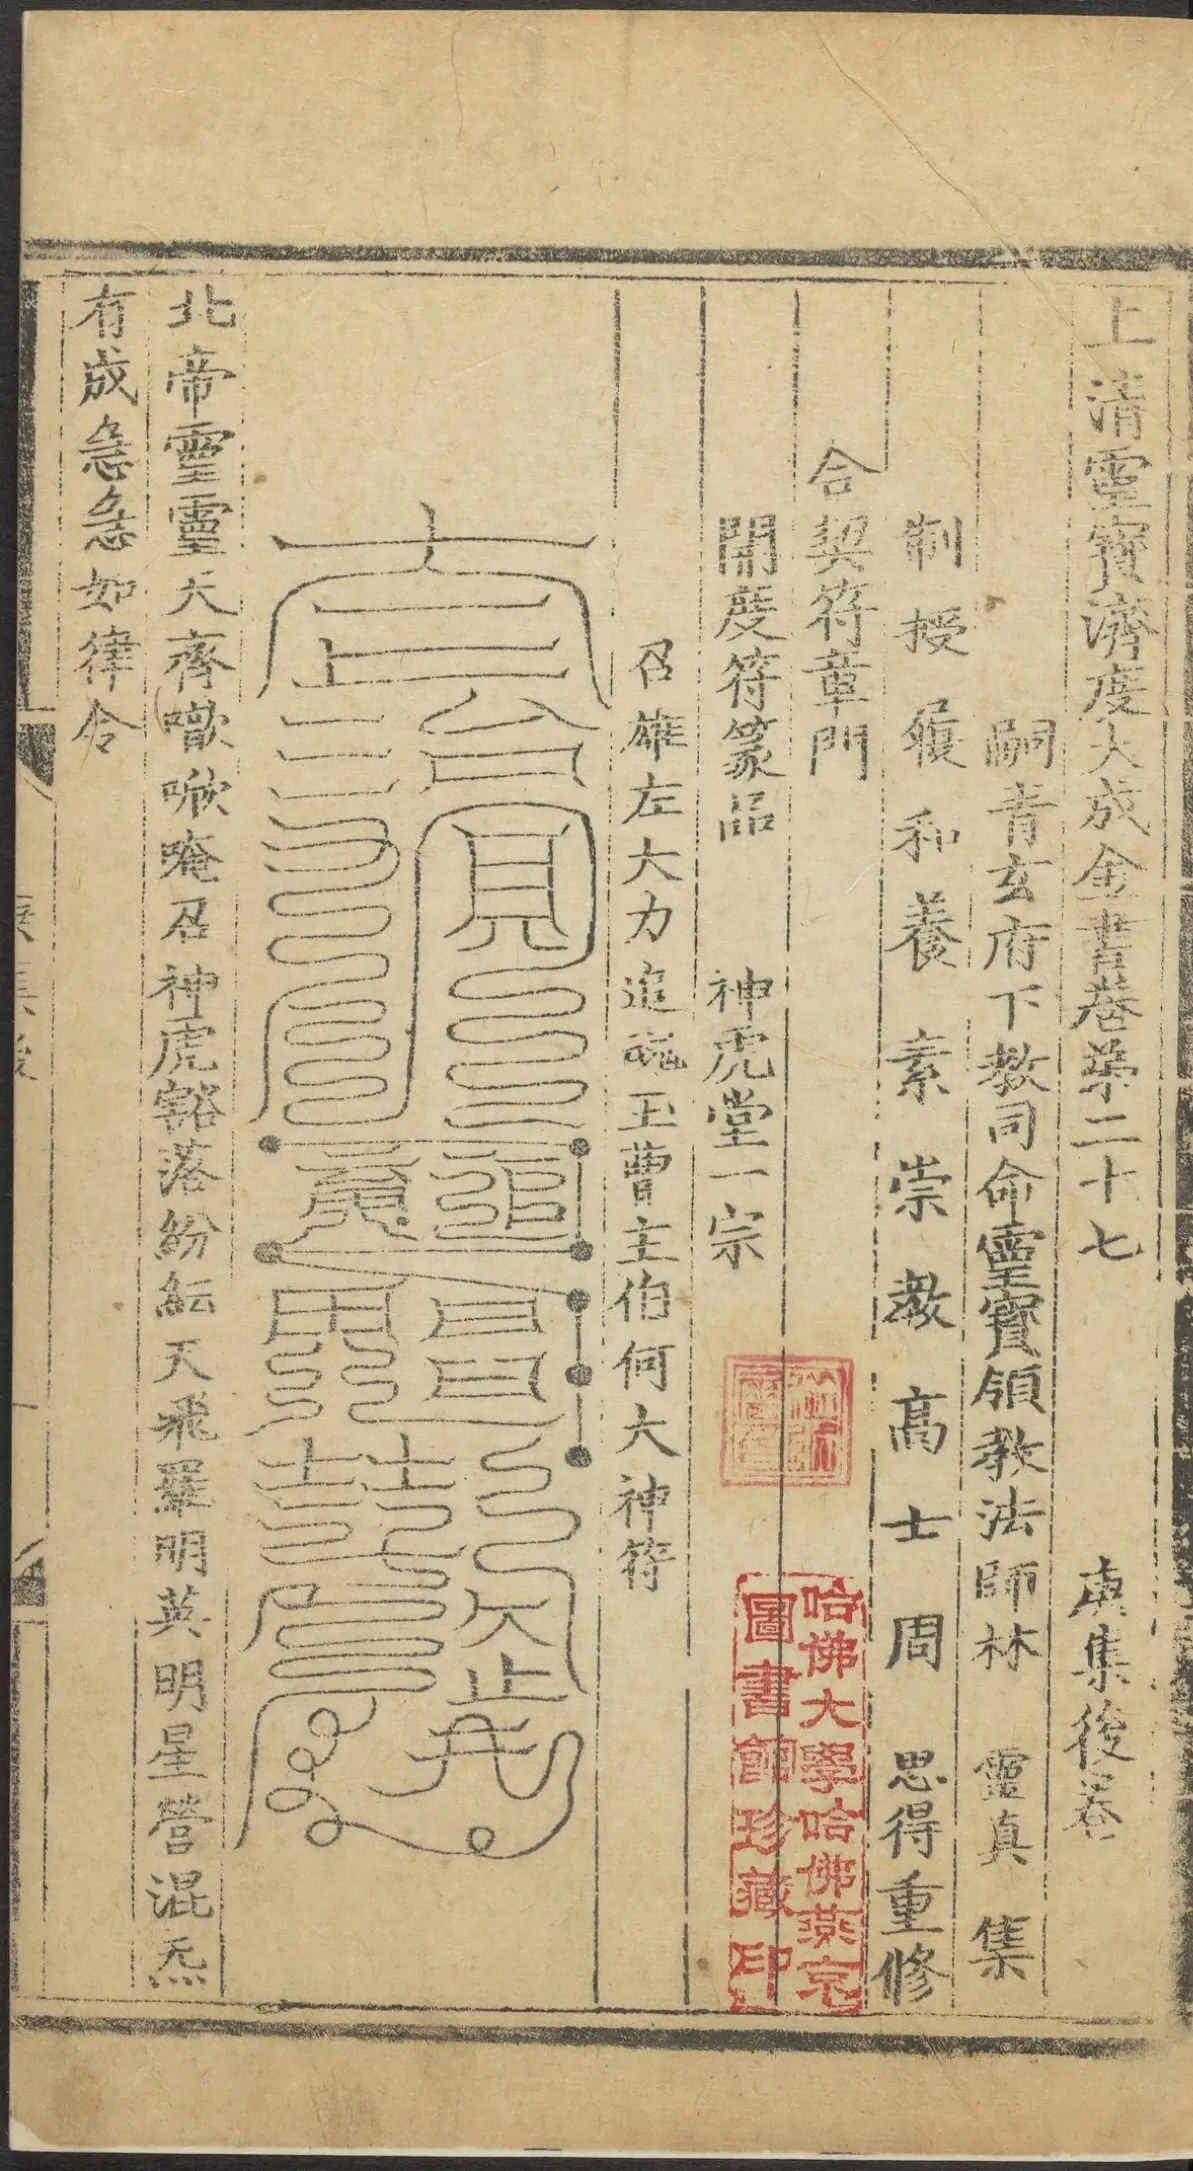 上清靈寶濟度大成金書卷第二十七 庚集後卷
嗣青玄府下教司命靈寶領教法師林 靈真 集
制授履和養素崇教高士周 思得重修
合契符章門
開度符篆品 神虎堂一宗
召雄左大力追魂玉曹主伯何大神符
北帝靈靈天齊㘚噷唵召神虎豁落紛紜天飛羅明英明星營混炁
有成急急如律令
哈佛大學哈佛燕京
圖書館珍藏印